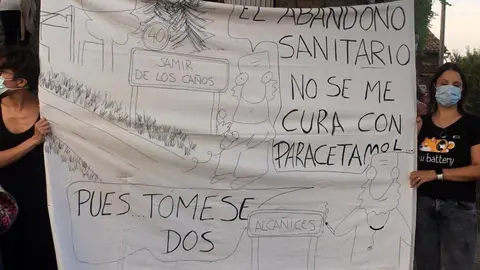 EL ABANDONO
SANITARIO
NO SE ME
CURA CON
PARACETAMOL...
40
SAMIR
DE LOS CAÑOS
PUES...TÓMESE
DOS
ALCAÑICES
battery